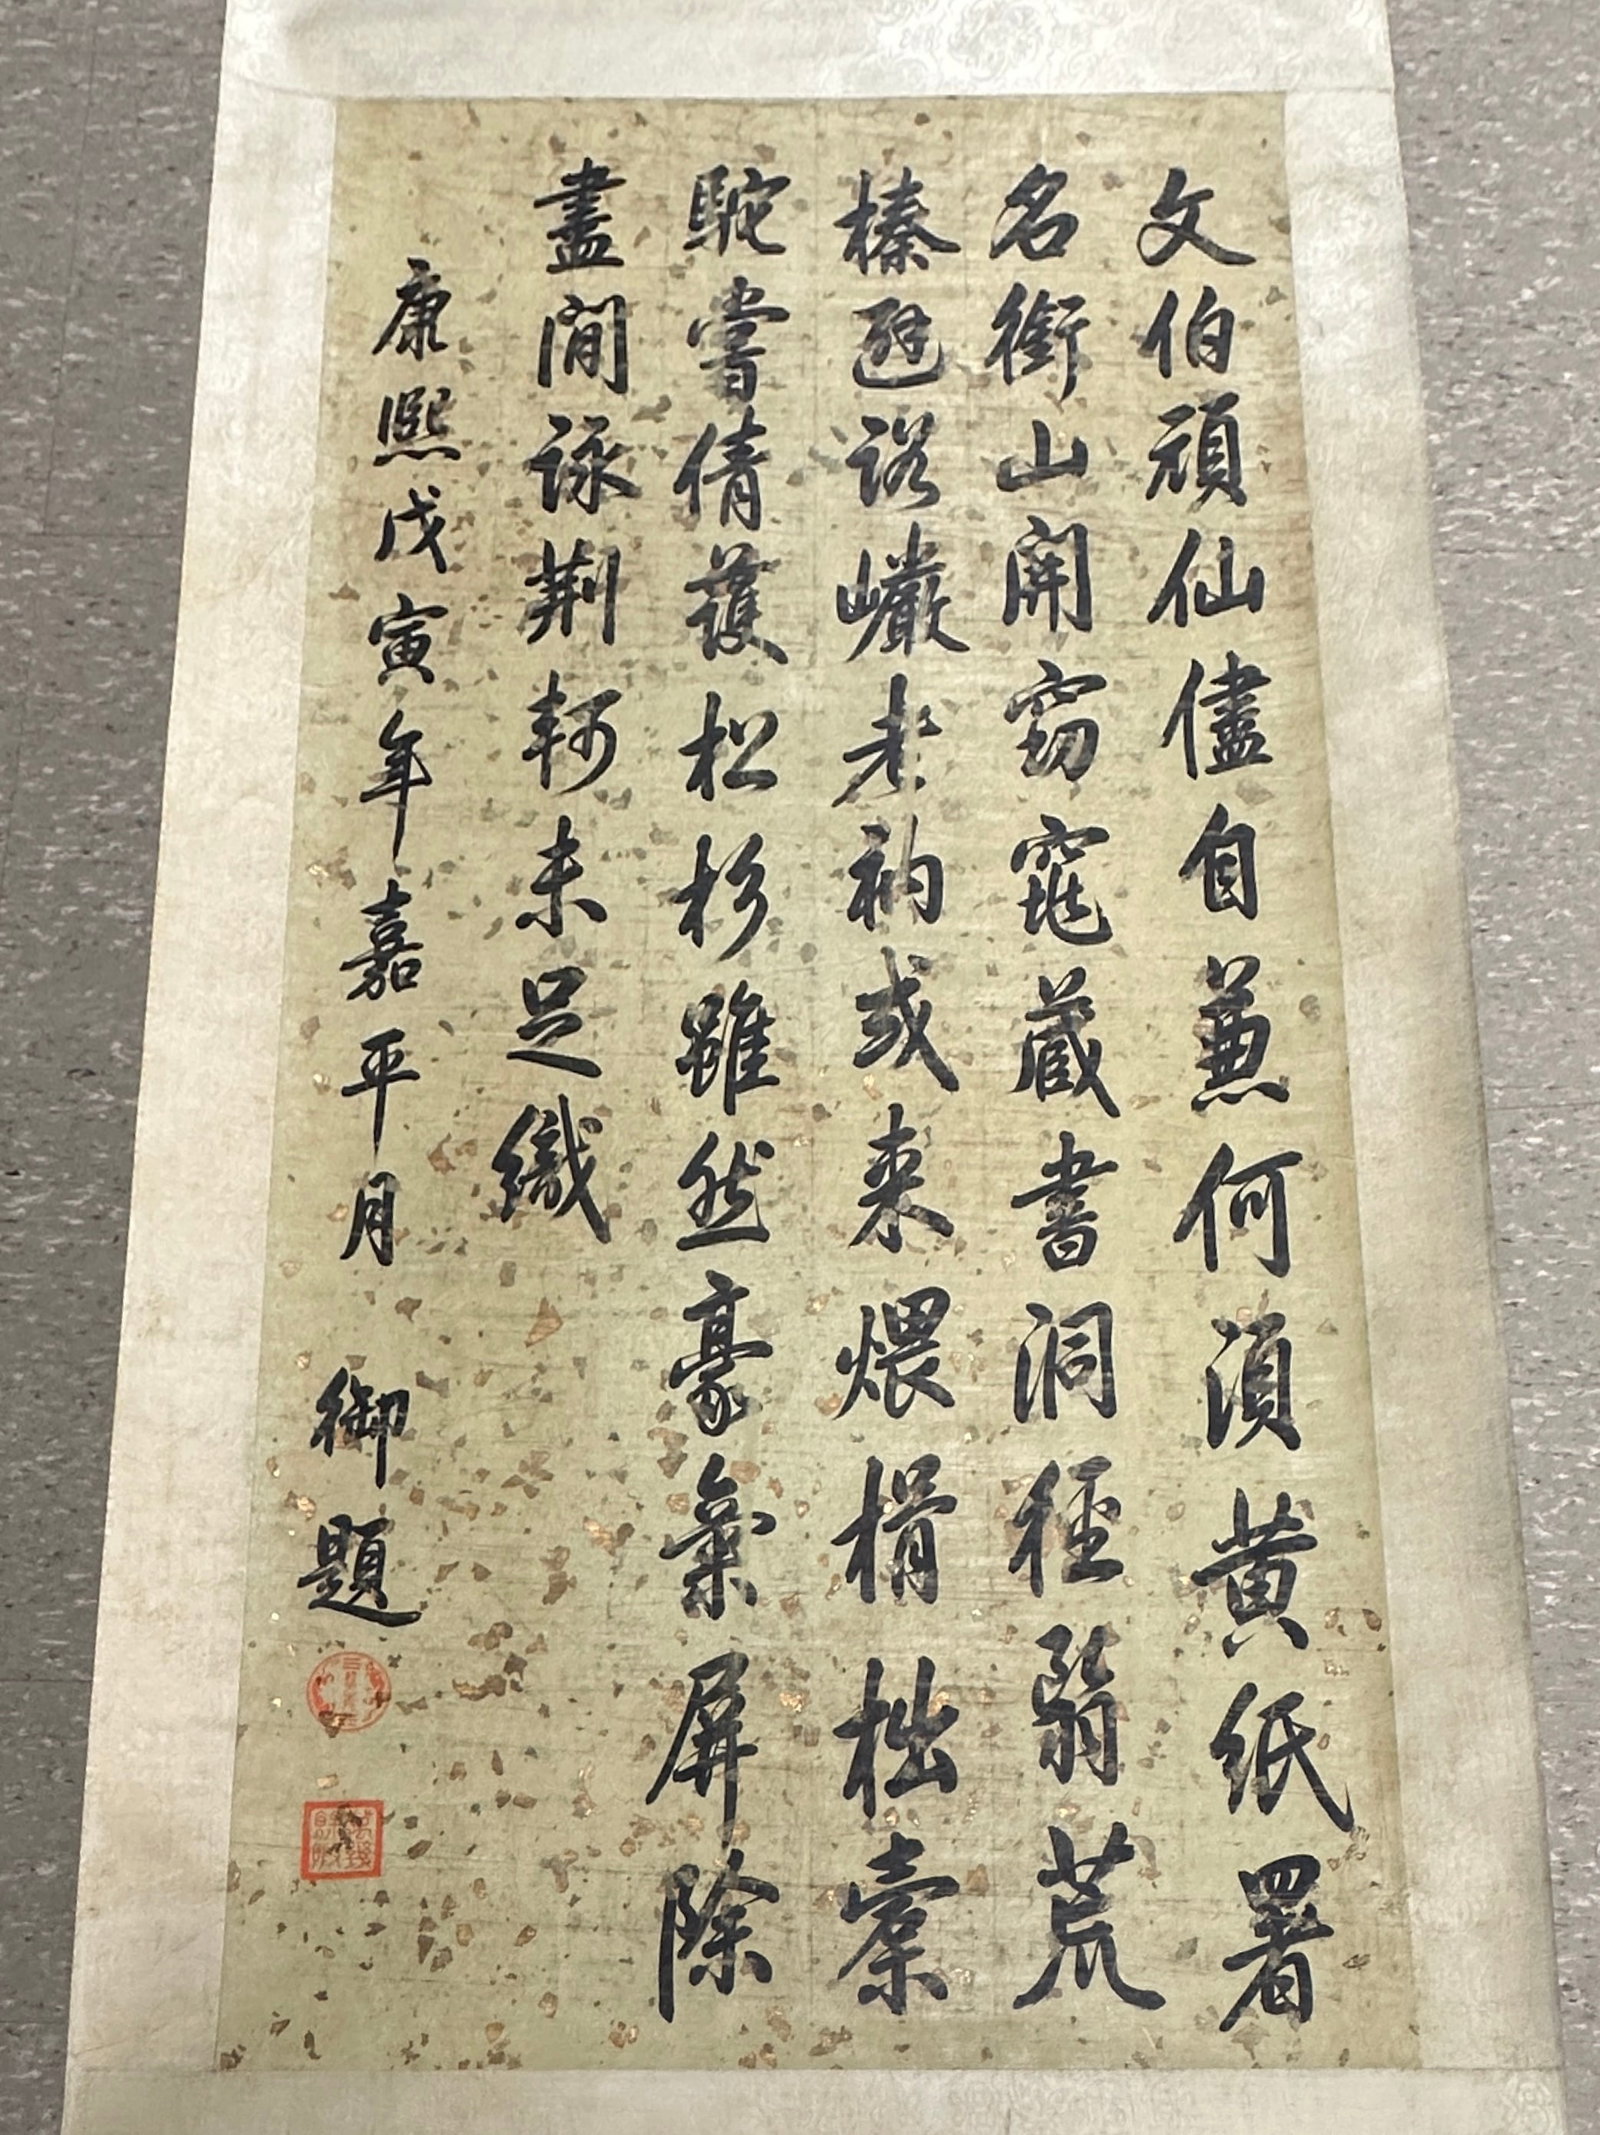 文伯頑仙儘自兼何須黃紙署
名銜山開窈窕藏書洞徑翳荒
榛避谷巖老衲或來煨榾柮橐
駝嘗倩護松杉雖然豪氣屏除
盡間詠荊軻未足織
康熙戊寅年嘉平月 御題